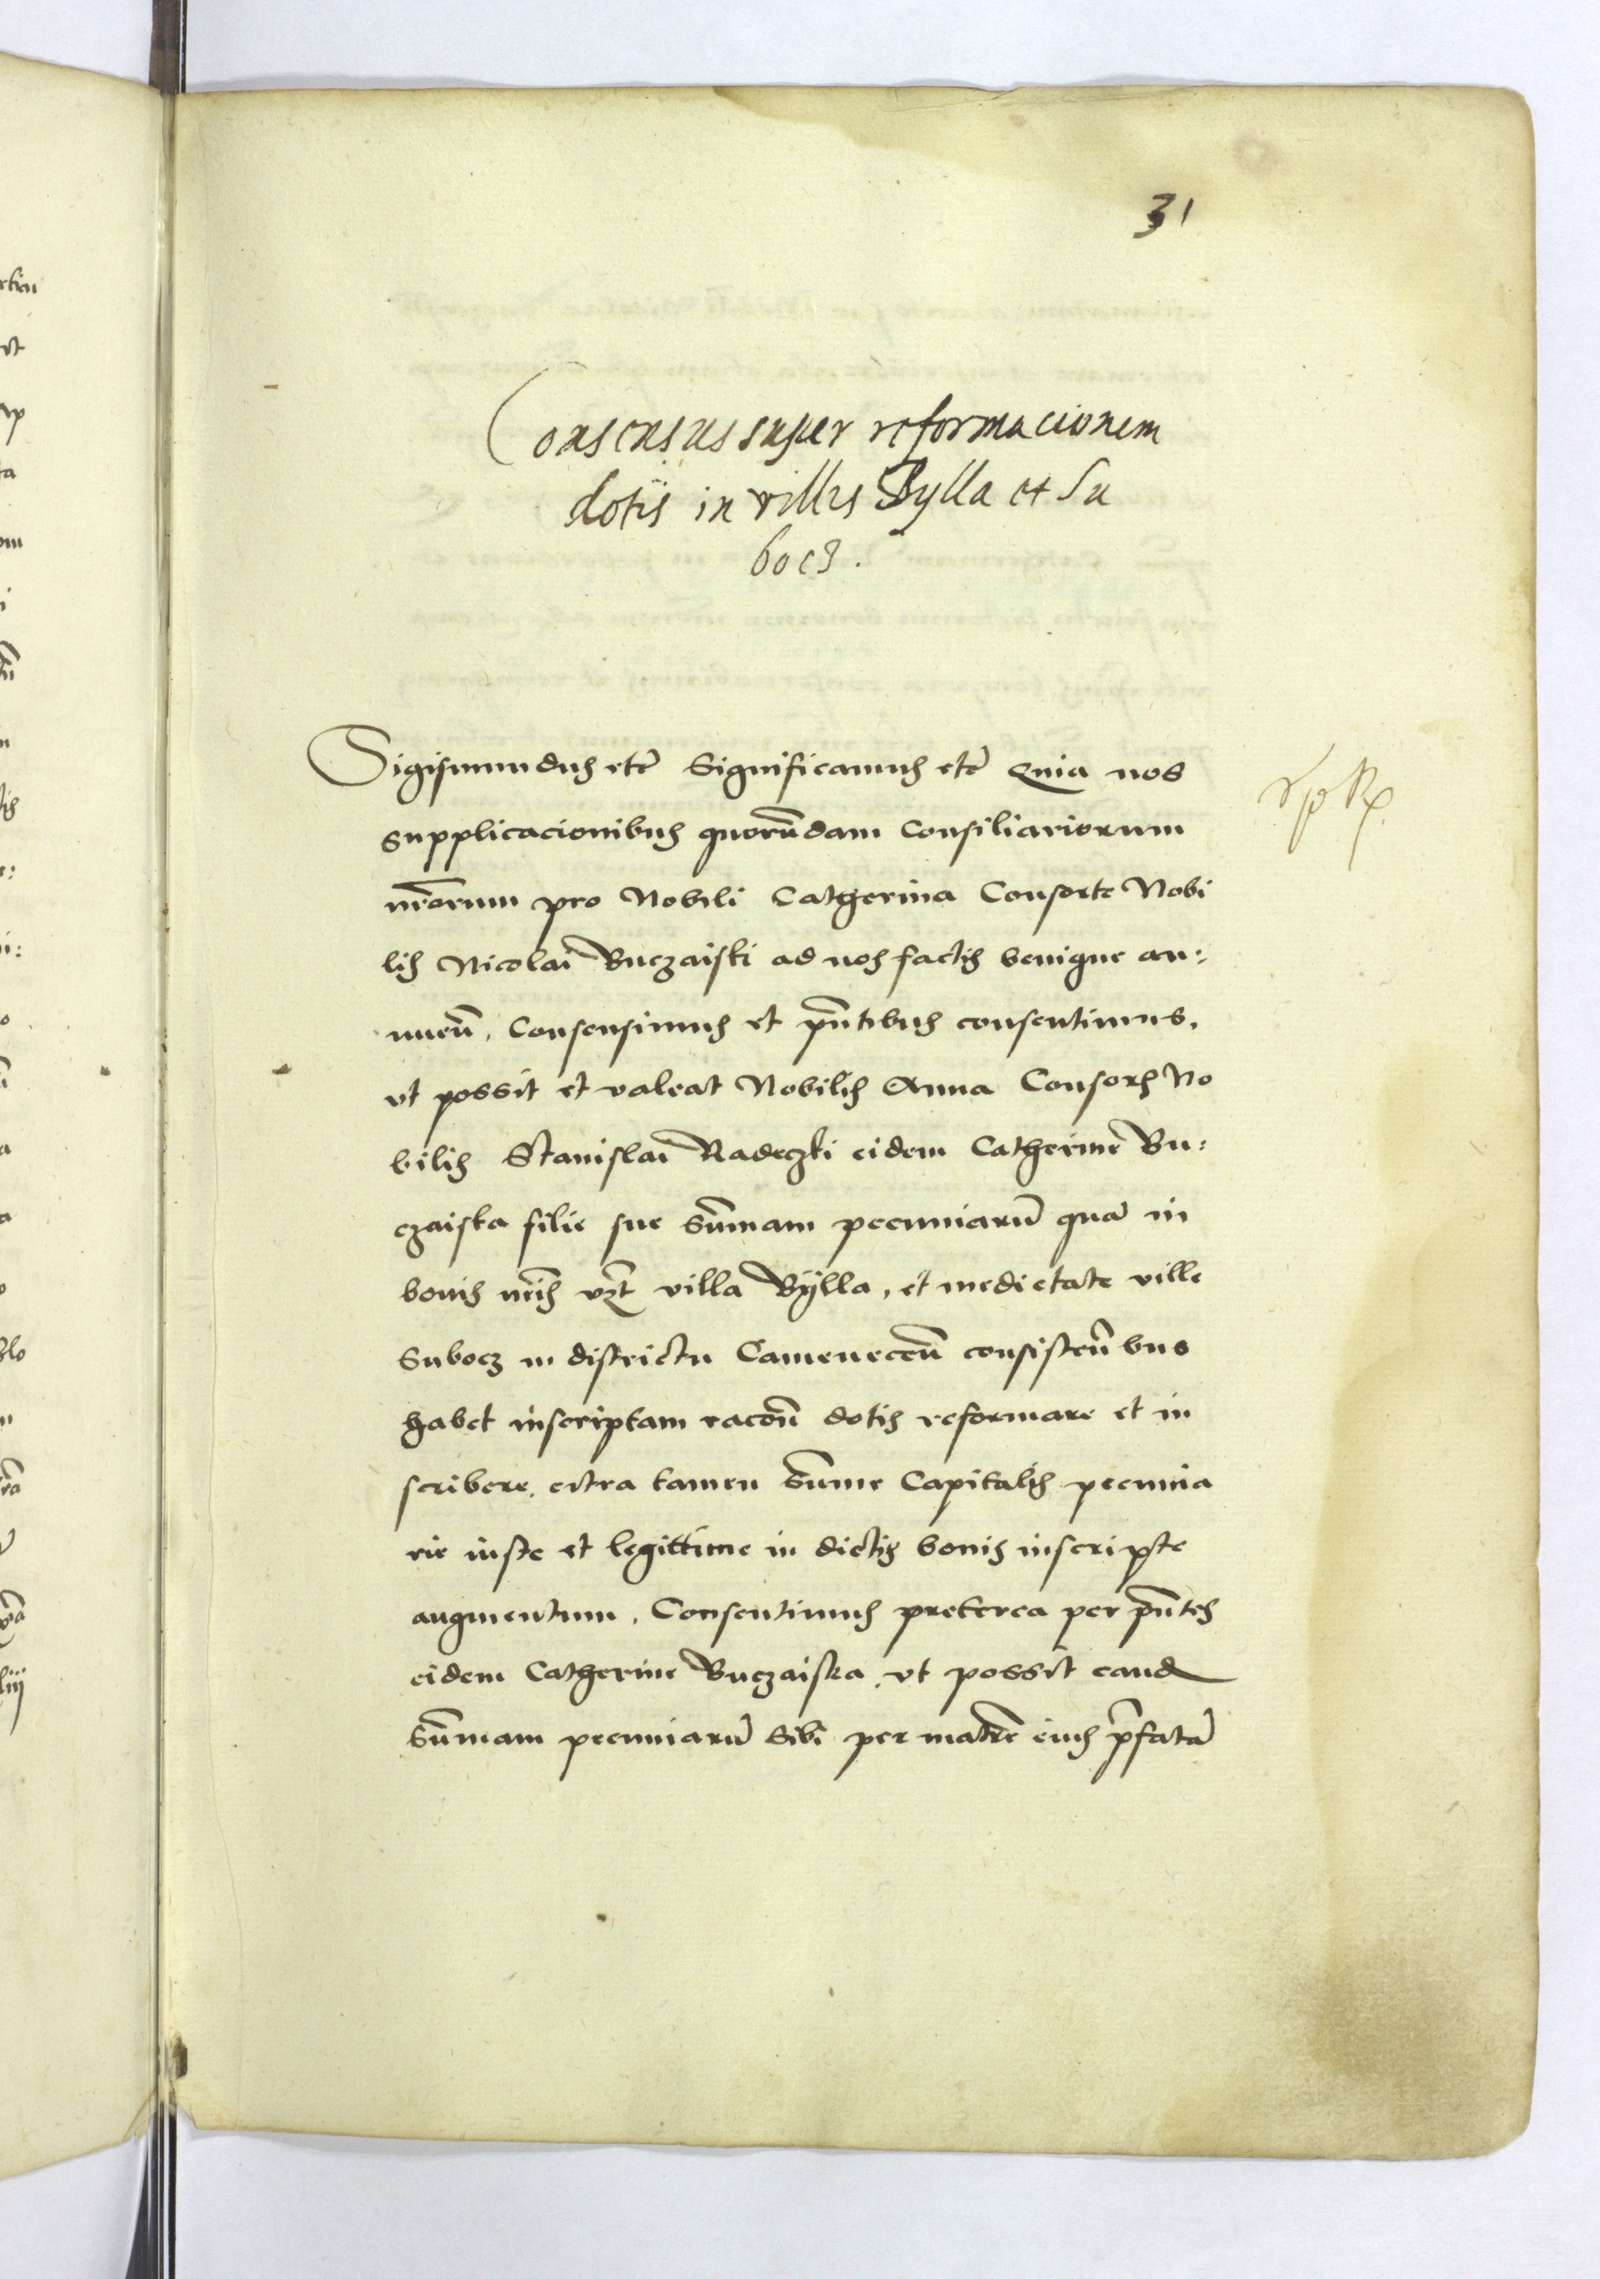 31
Consensus super reformacionem
dotis in villis Bylla et Su
bocz.
Sigismundus etc̃ Significamus etc̃ Quia nos
supplicacionibus quorũdam Consiliariorum
nr̃orum pro Nobili Catherina Consorte Nobi
lis Nicolai Buczaiski ad nos factis benigne an:
nuen̄. Consensimus et pñtibus consentimus,
vt possit et valeat Nobilis Anna Consors No
bilis Stanislai Radeczki eidem Catherine Bu:
czaiska filie sue Sum̃am pecuniarũ quã in
bonis nr̃is vz̃t villa Bÿlla, et medietate ville
Subocz in districtu Camenecen̄ consisten̄bus
habet inscriptam racõn̄ dotis reformare et in
scribere, citra tamen Sum̃e Capitalis pecunia
rie iuste et legittime in dictis bonis inscripte
augmentum, Consentimus preterea per pñtes
eidem Catherine Buczaiska, vt possit eand
Sum̃am pecuniarũ Sibi per matrẽ eius p̃fatã